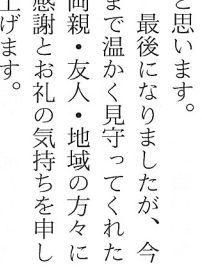 と思います。
最後になりましたが、今
まで温かく見守ってくれた
両親・友人・地域の方々に
感謝とお礼の気持ちを申し
上げます。